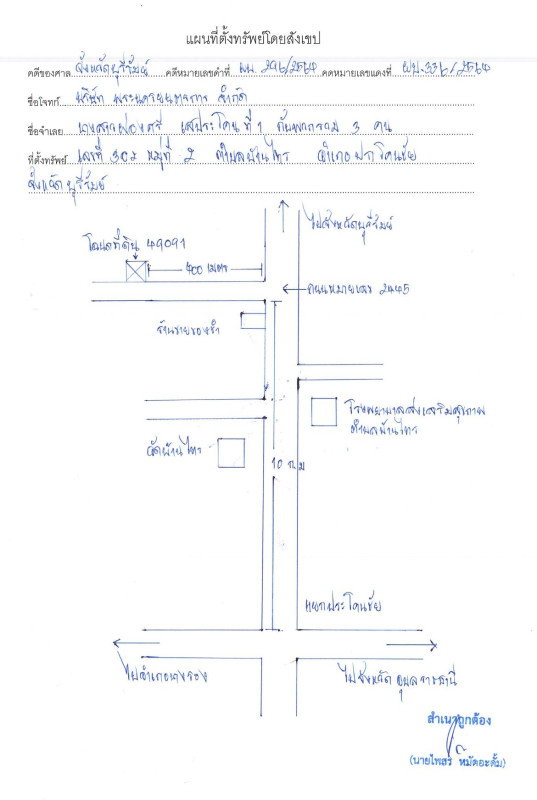 แผนที่ตั้งทรัพย์โดยสังเขป
คดีของศาล จังหวัดบุรีรัมย์ คดีหมายเลขดำที่ ผบ. 296/2564 คดหมายเลขแดงที่ ผบ.336/2564
ชื่อโจทก์ บริษัท พระนครยนตรการ จำกัด
ชื่อจำเลย เสประโคนที่ 1 กับพวกรวม 3 คน
ที่ตั้งทรัพย์ เลขที่ หมู่ที่ 2 ตำบลบ้านไทร อำเภอประโคนชัย
จังหวัดบุรีรัมย์
ไปจังหวัดบุรีรัมย์
โฉนดที่ดิน 49091
400 เมตร
ถนนหมายเลข 2445
ร้านขายของชำ
โรงพยาบาลส่งเสริมสุขภาพ
ตำบลบ้านไทร
วัดบ้านไทร
10 กม
แยกประโคนชัย
ไปอำเภอนางรอง
ไปจังหวัดอุบลราชธานี
สำเนาถูกต้อง
(นายไพสรี หมัดอะดั้ม)